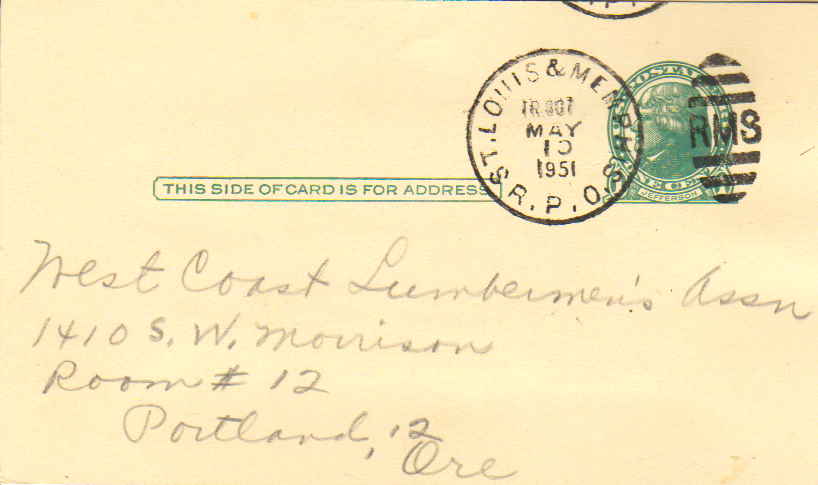 ST. LOUIS & MEMPHIS R.P.O.
MAY
10
1951
RMS
JEFFERSON
THIS SIDE OF CARD IS FOR ADDRESS
West Coast Lumbermen's Assn
1410 S. W. Morrison
Room # 12
Portland, 12
Ore